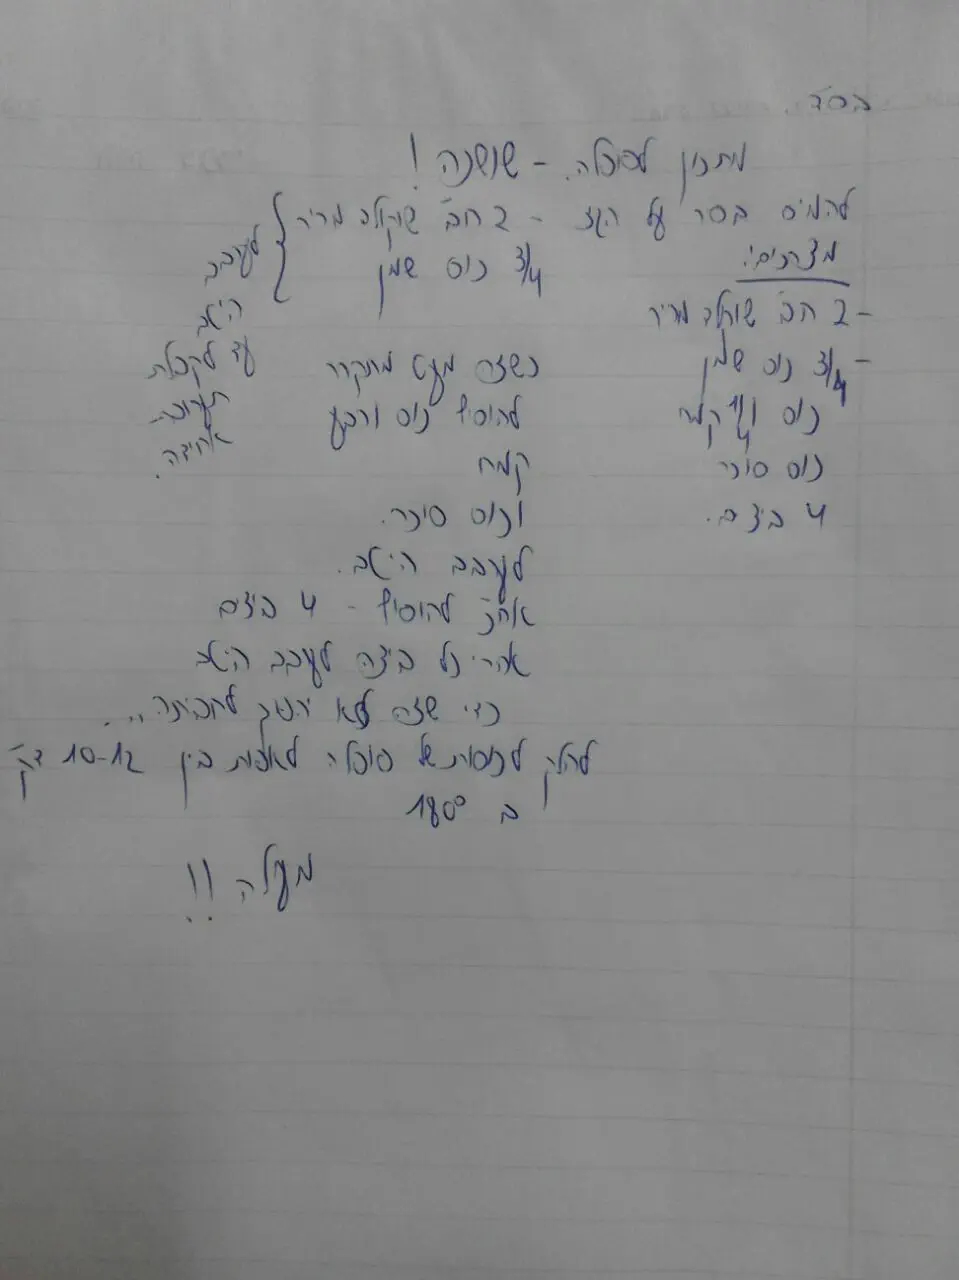 בס"ד
מתכון לסופלה - שושנה!
להמיס בסיר על הגז - 2 חב' שוקולד מריר
3/4 כוס שמן
לערבב
היטב
עד לקבלת
תערובת
אחידה.
מצרכים:
- 2 חב' שוקולד מריר
- 3/4 כוס שמן
כוס ו 1/4 קמח
כוס סוכר
4 ביצים.
כשזה מעט מתקרר
להוסיף כוס ורבע
קמח
וכוס סוכר.
לערבב היטב.
אח"כ להוסיף - 4 ביצים
אחרי כל ביצה לערבב היטב
כדי שזה לא יהפוך לחביתה...
לחלק לכוסות של סופלה לאפות בין 10-12 דק'
ב 180°
מעלה!!